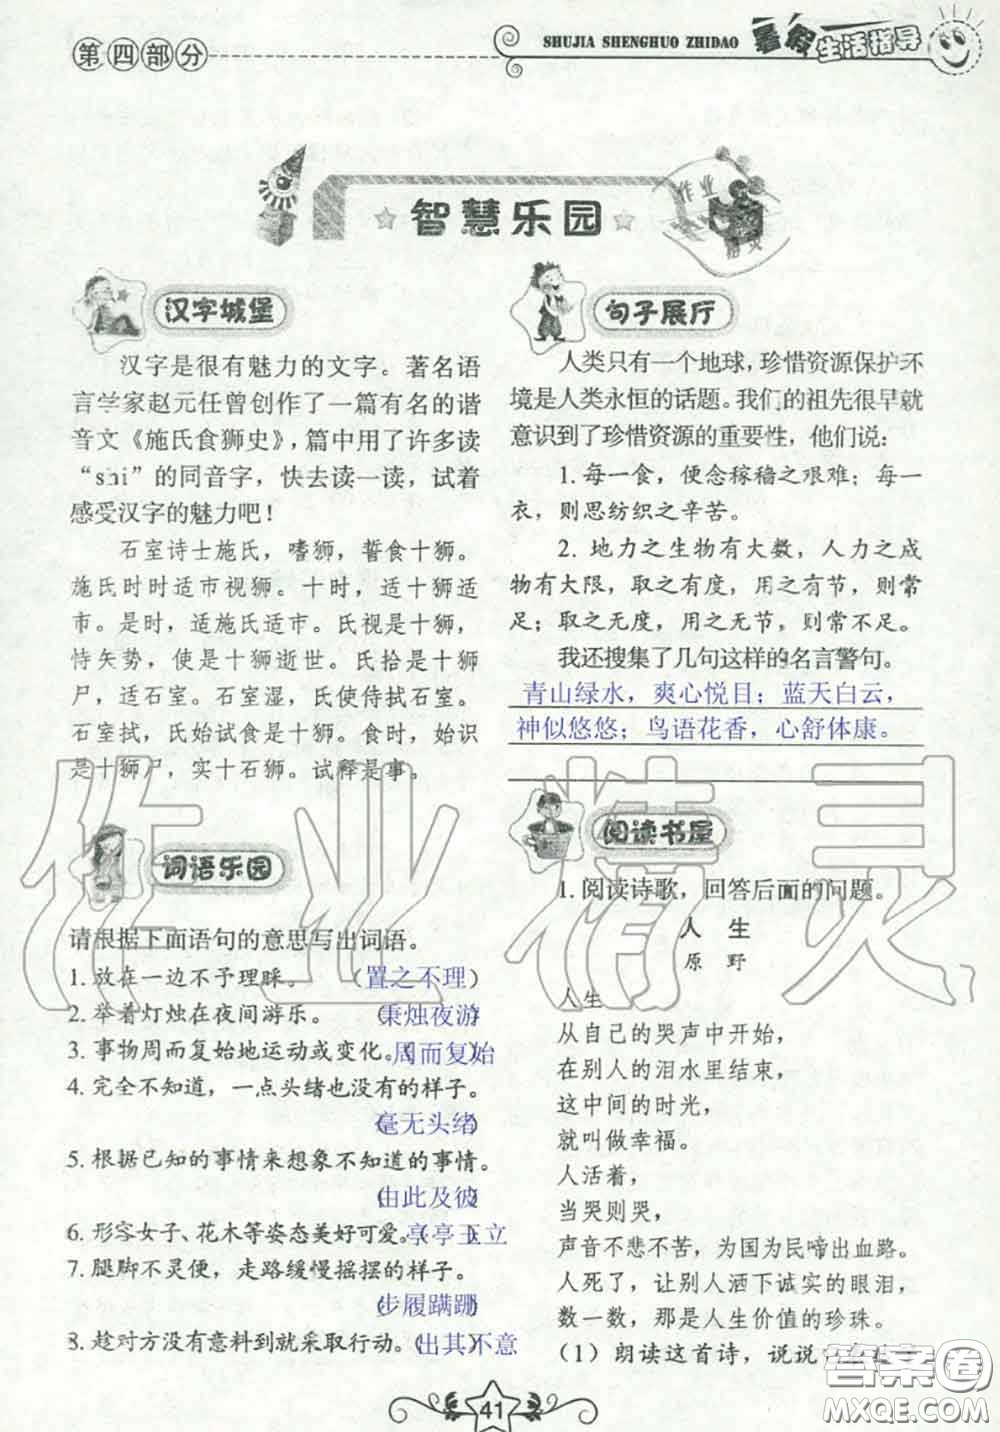 第四部分
SHUJIA SHENGHUO ZHIDAO
暑假生活指导
智慧乐园
作业
汉字城堡
汉字是很有魅力的文字。著名语
言学家赵元任曾创作了一篇有名的谐
音文《施氏食狮史》，篇中用了许多读
“shi”的同音字，快去读一读，试着
感受汉字的魅力吧！
石室诗士施氏，嗜狮，誓食十狮。
施氏时时适市视狮。十时，适十狮适
市。是时，适施氏适市。氏视是十狮，
恃矢势，使是十狮逝世。氏拾是十狮
尸，适石室。石室湿，氏使侍拭石室。
石室拭，氏始试食是十狮。食时，始识
是十狮尸，实十石狮。试释是事。
词语乐园
请根据下面语句的意思写出词语。
1. 放在一边不予理睬。（置之不理）
2. 举着灯烛在夜间游乐。（秉烛夜游）
3. 事物周而复始地运动或变化。（周而复始
4. 完全不知道，一点头绪也没有的样子。
（毫无头绪）
5. 根据已知的事情来想象不知道的事情。
（由此及彼）
6. 形容女子、花木等姿态美好可爱。（亭亭玉立）
7. 腿脚不灵便，走路缓慢摇摆的样子。
（步履蹒跚）
8. 趁对方没有意料到就采取行动。（出其不意
句子展厅
人类只有一个地球，珍惜资源保护环
境是人类永恒的话题。我们的祖先很早就
意识到了珍惜资源的重要性，他们说：
1. 每一食，便念稼穑之艰难；每一
衣，则思纺织之辛苦。
2. 地力之生物有大数，人力之成
物有大限，取之有度，用之有节，则常
足；取之无度，用之无节，则常不足。
我还搜集了几句这样的名言警句。
青山绿水，爽心悦目；蓝天白云，
神似悠悠；鸟语花香，心舒体康。
阅读书屋
1. 阅读诗歌，回答后面的问题。
人 生
原 野
人生
从自己的哭声中开始，
在别人的泪水里结束，
这中间的时光，
就叫做幸福。
人活着，
当哭则哭，
声音不悲不苦，为国为民啼出血路。
人死了，让别人洒下诚实的眼泪，
数一数，那是人生价值的珍珠。
（1）朗读这首诗，说说
41
作业精灵
答案圈
MXQE.COM